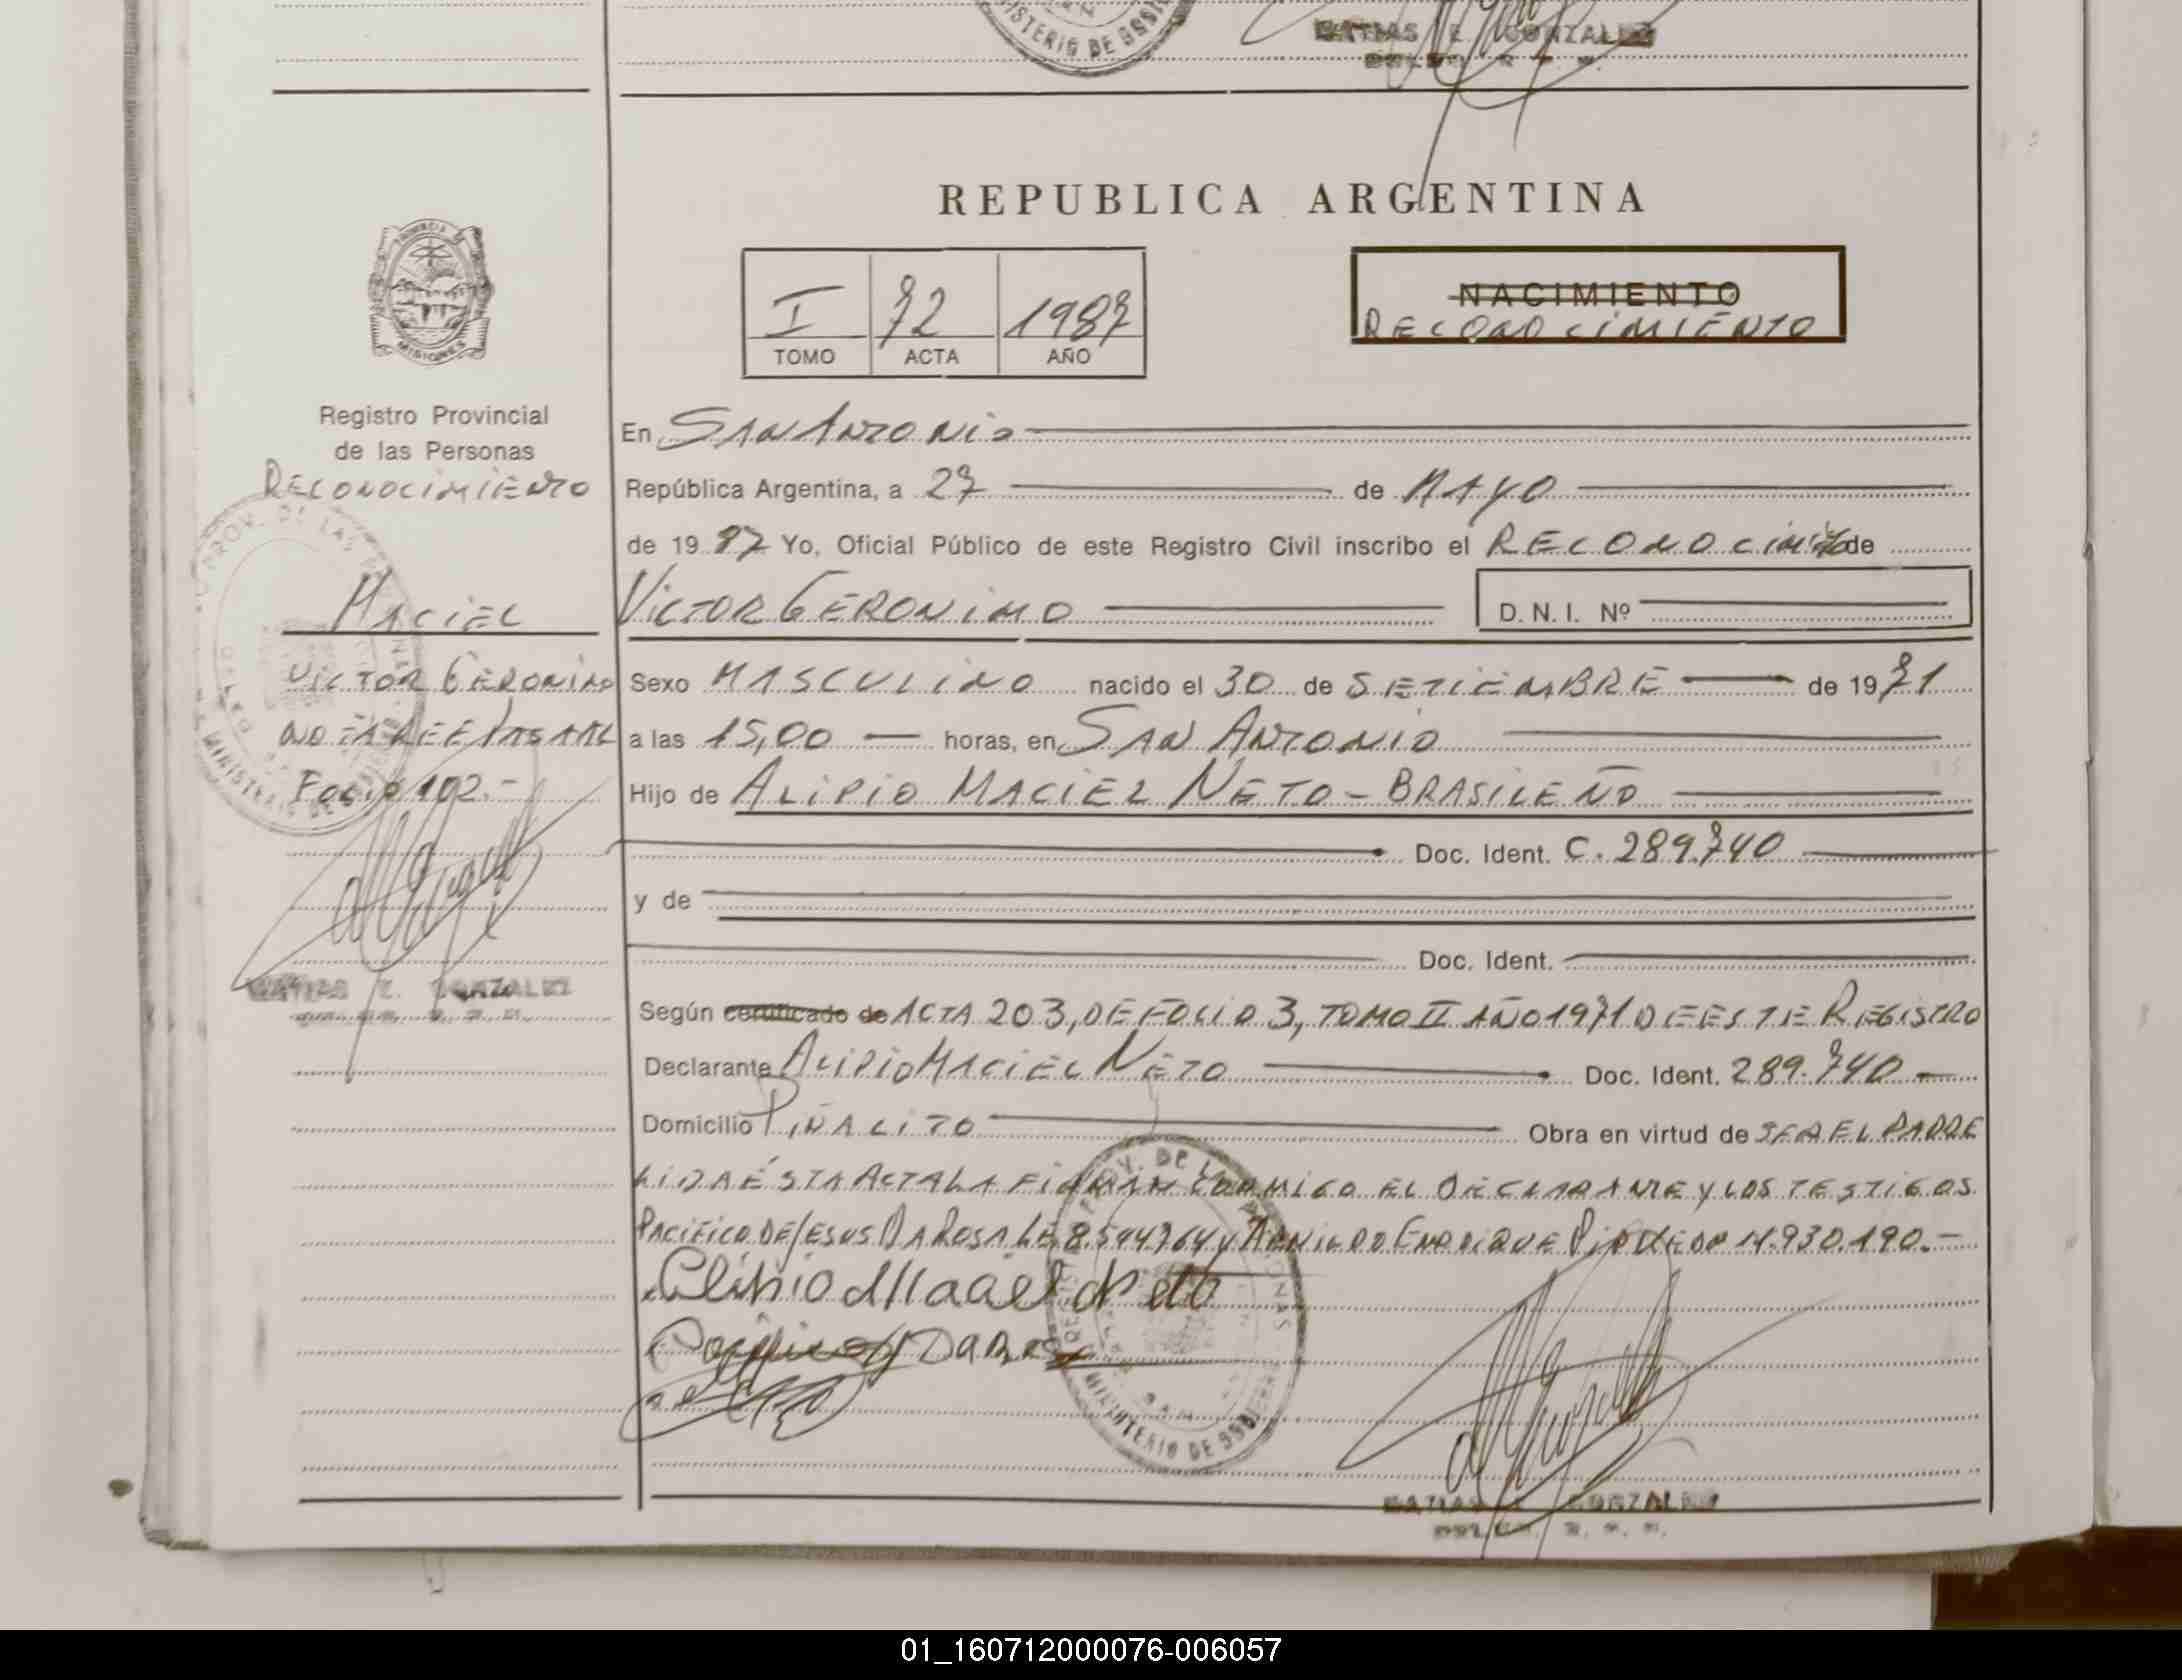 MINISTERIO DE GOBIERNO
MATIAS E. GONZALEZ
REPUBLICA ARGENTINA
I 72 1987
TOMO ACTA AÑO
NACIMIENTO
RECONOCIMIENTO
PROVINCIA DE
MISIONES
Registro Provincial
de las Personas
RECONOCIMIENTO
MACIEL
VICTOR GERONIMO
Folio 102.-
MATIAS E. GONZALEZ
En SAN ANTONIO
República Argentina, a 27 de MAYO
de 1987 Yo, Oficial Público de este Registro Civil inscribo el RECONOCIMIENTO de
VICTOR GERONIMO D. N. I. Nº
Sexo MASCULINO nacido el 30 de SETIEMBRE de 1971
a las 15,00 horas, en SAN ANTONIO
Hijo de ALIPIO MACIEL NETO - BRASILEÑO
Doc. Ident. C. 289.740
y de
Doc. Ident.
Según certificado de ACTA 203, DE FOLIO 3, TOMO II AÑO 1971 DE ESTE REGISTRO
Declarante ALIPIO MACIEL NETO Doc. Ident. 289.740
Domicilio PIÑALITO Obra en virtud de SER EL PADRE
LIDA ÉSTA ACTA LA FIRMAN CONMIGO EL DECLARANTE Y LOS TESTIGOS
PACIFICO DE JESUS DA ROSA LE 8.544764 y ENRIQUE 11.930.190.-
Alipio Maciel Neto
MINISTERIO DE GOBIERNO
MATIAS E. GONZALEZ
01_160712000076-006057